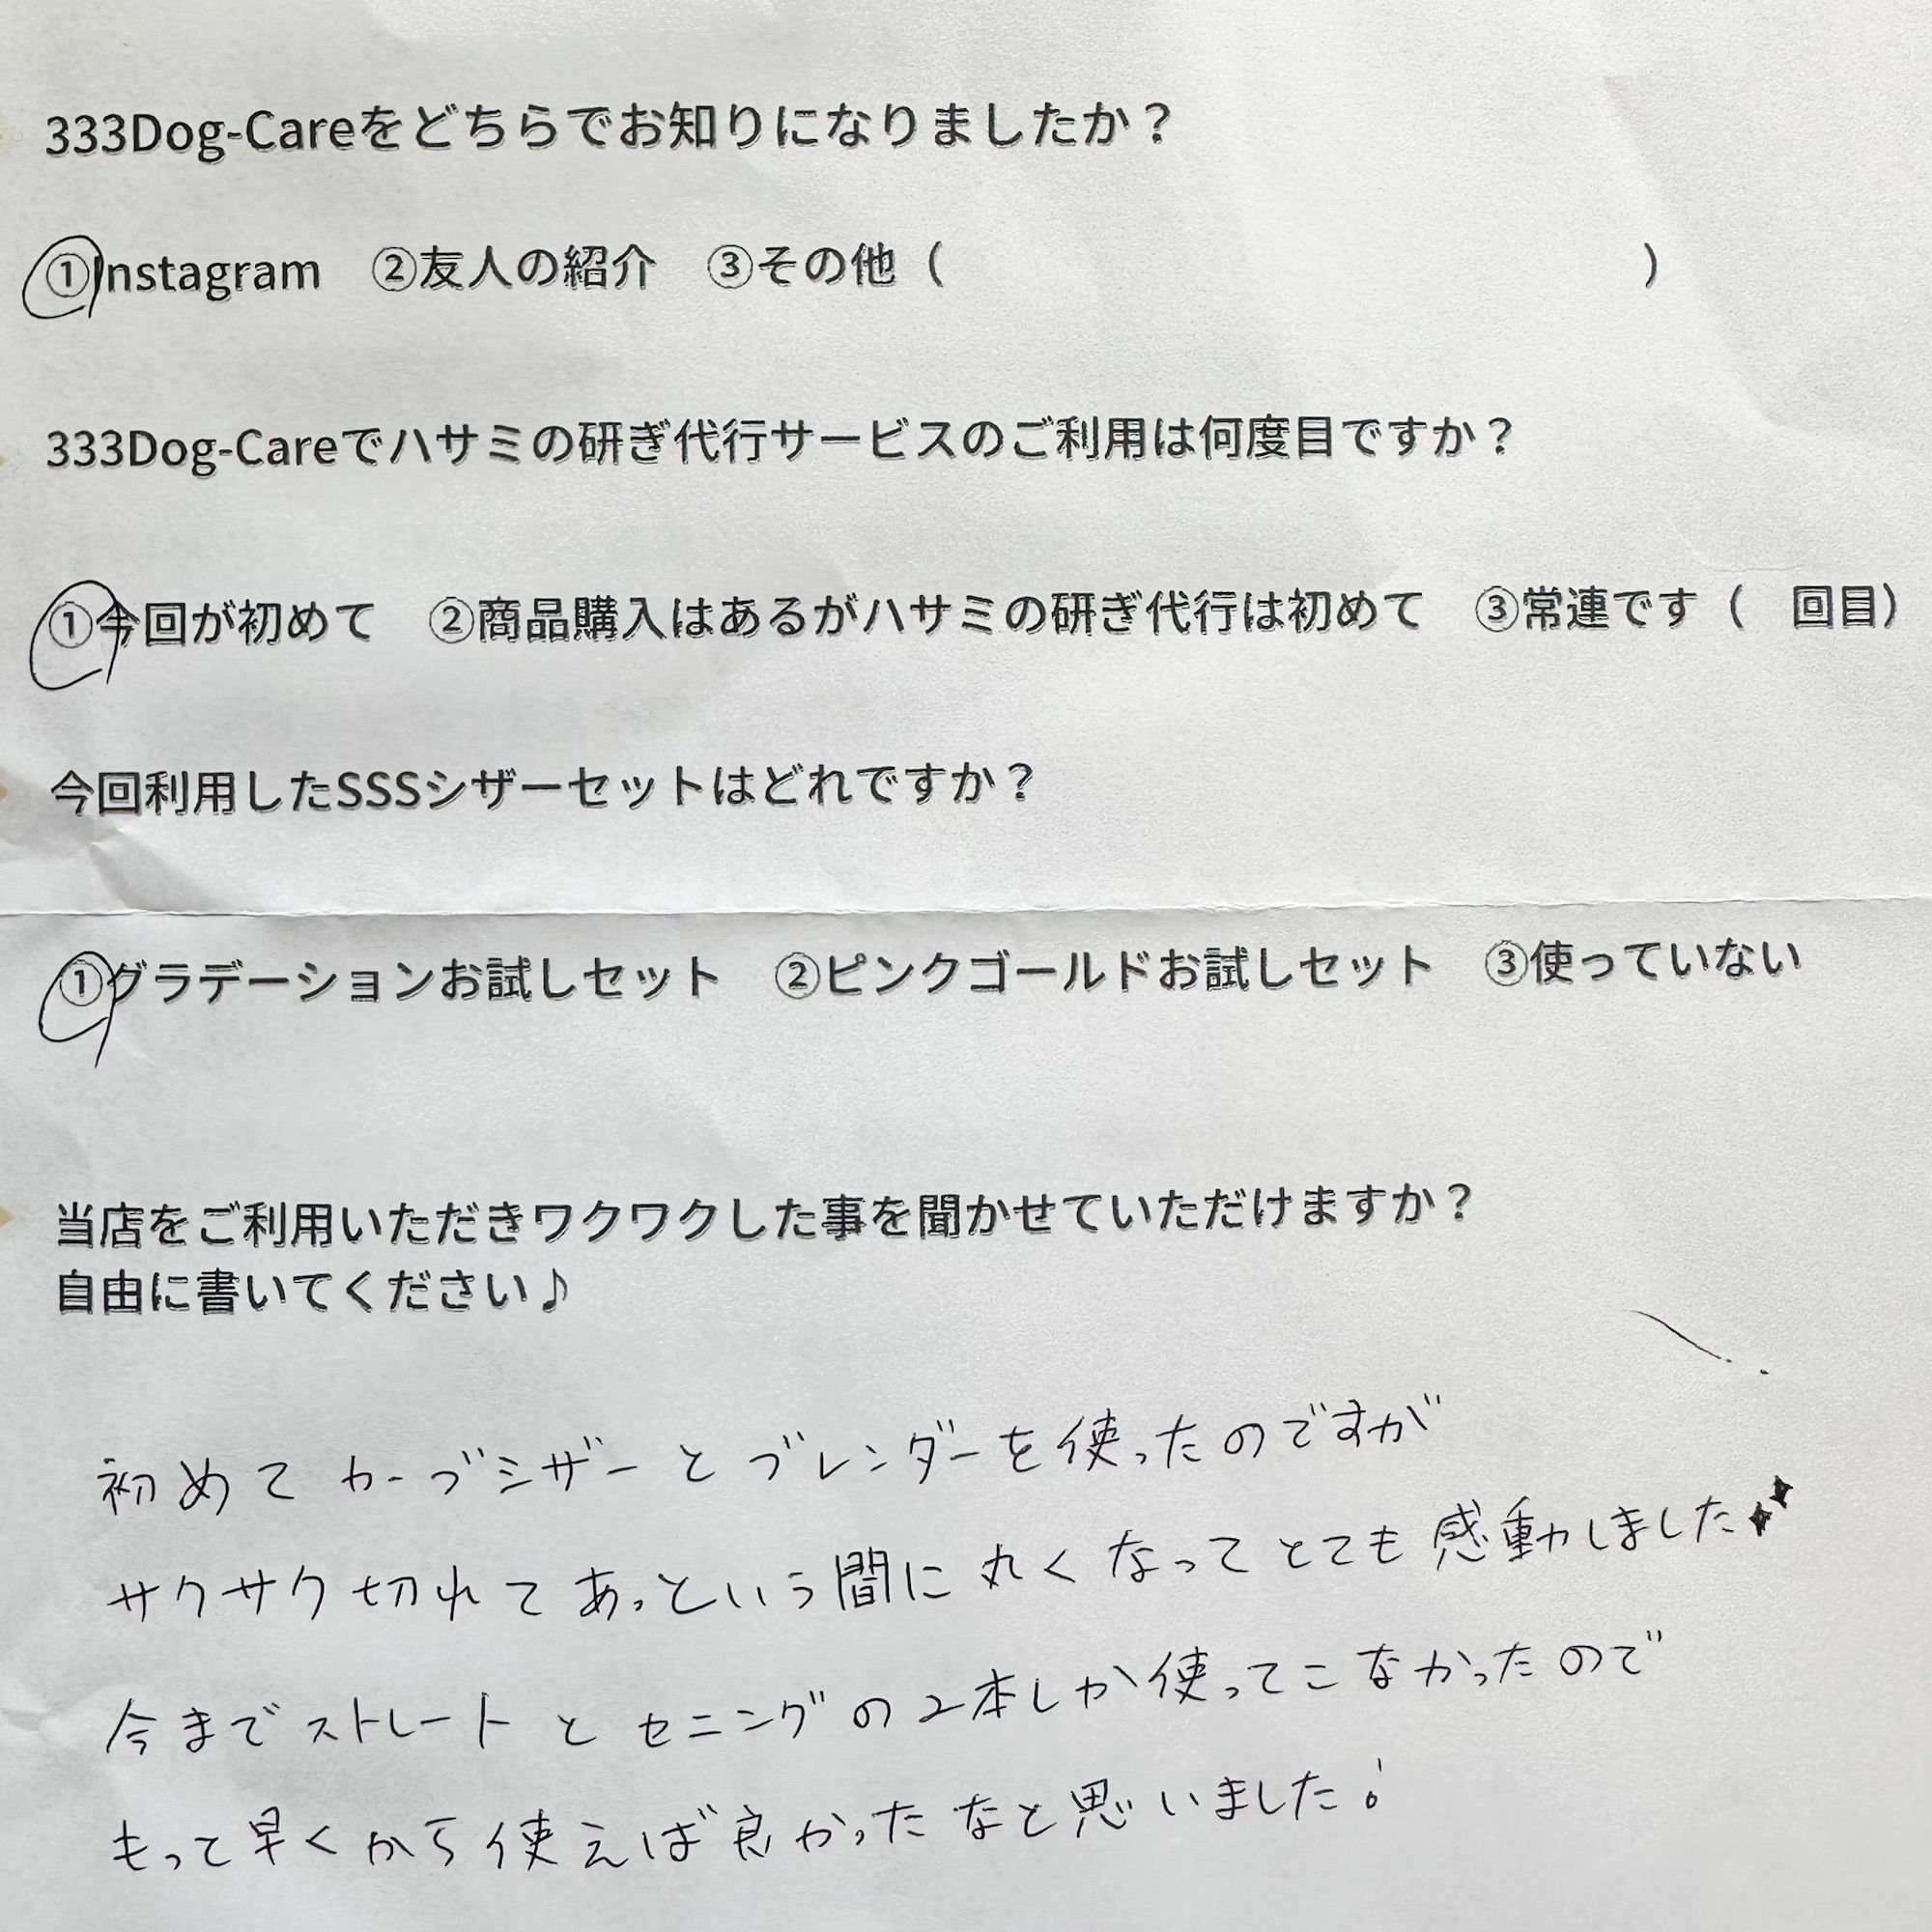 333Dog-Careをどちらでお知りになりましたか？
①Instagram　②友人の紹介　③その他（　　　　　　　　　　　　　　）
333Dog-Careでハサミの研ぎ代行サービスのご利用は何度目ですか？
①今回が初めて　②商品購入はあるがハサミの研ぎ代行は初めて　③常連です（　回目）
今回利用したSSSシザーセットはどれですか？
①グラデーションお試しセット　②ピンクゴールドお試しセット　③使っていない
当店をご利用いただきワクワクした事を聞かせていただけますか？
自由に書いてください♪
初めてカーブシザーとブレンダーを使ったのですが
サクサク切れてあっという間に丸くなってとても感動しました✨
今までストレートとセニングの2本しか使ってこなかったので
もっと早くから使えば良かったなと思いました！